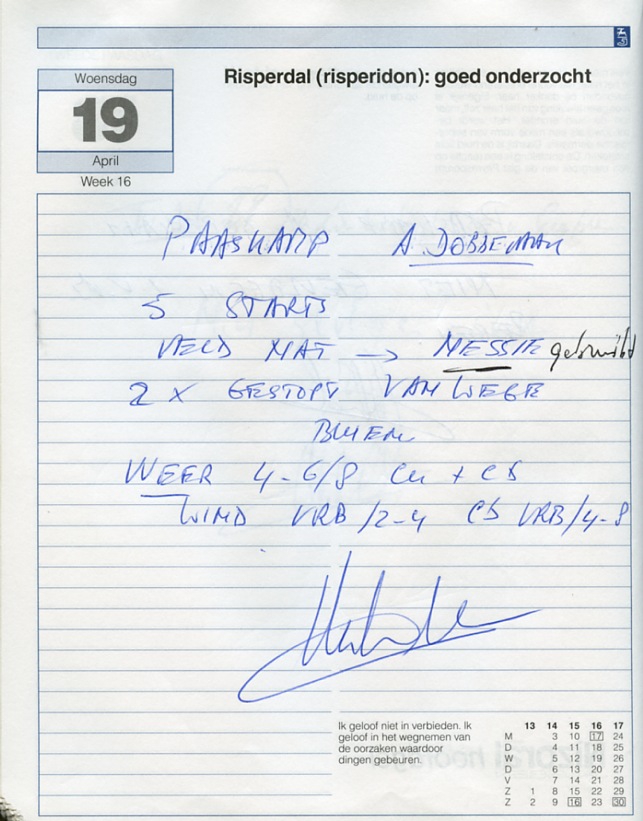 Woensdag
19
April
Week 16
Risperdal (risperidon): goed onderzocht
PAASKAMP A. DOBBEMAN
5 STARTS
VELD NAT → NESSIE gebruikt
2 X GESTOPT VAN WEGE
BUIEN
WEER 4-6/8 Cu + CB
WIND VRB/2-4 CB VRB/4-8
Ik geloof niet in verbieden. Ik
geloof in het wegnemen van
de oorzaken waardoor
dingen gebeuren.
13 14 15 16 17
M 3 10 17 24
D 4 11 18 25
W 5 12 19 26
D 6 13 20 27
V 7 14 21 28
Z 1 8 15 22 29
Z 2 9 16 23 30